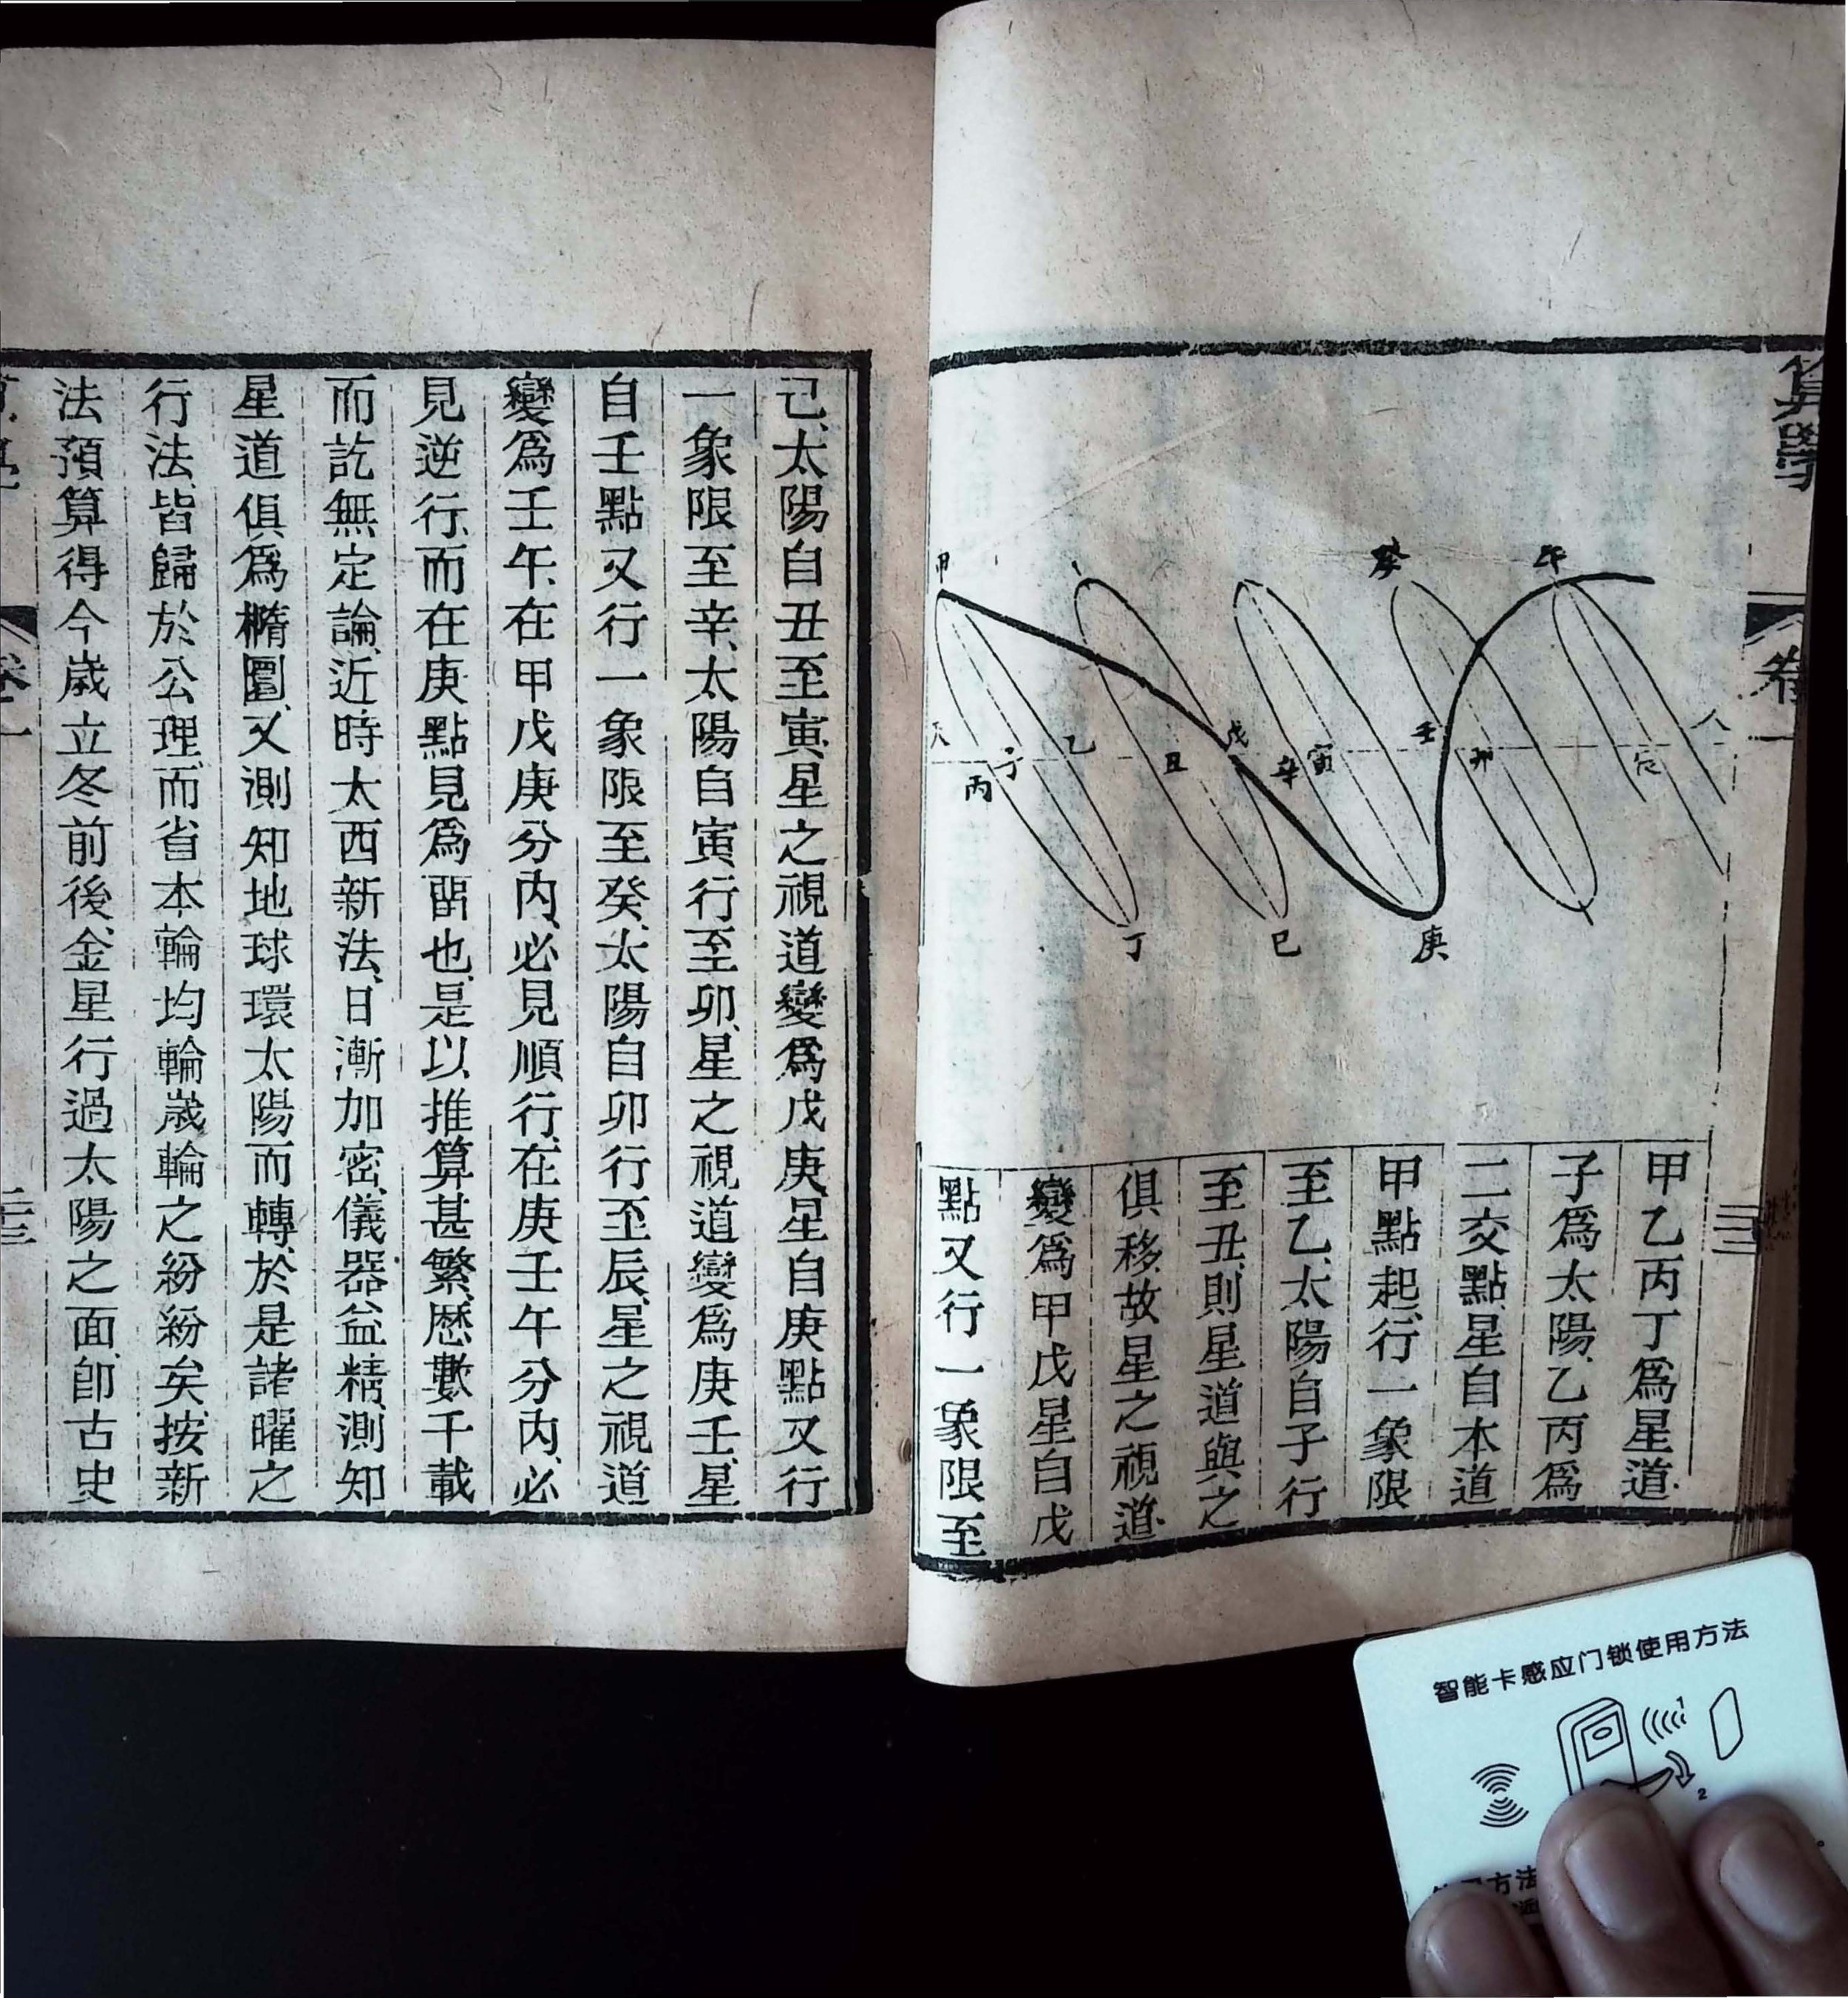 算學
卷一
甲
癸
午
天
子
乙
丙
丑
戊
辛
寅
壬
卯
辰
人
丁
巳
庚
甲乙丙丁爲星道、
子爲太陽、乙丙爲
二交點、星自本道
甲點起、行一象限
至乙、太陽自子行
至丑、則星道與之
俱移、故星之視道、
變爲甲戊、星自戊
點又行一象限至
己、太陽自丑至寅、星之視道變爲戊庚、星自庚點又行
一象限至辛、太陽自寅行至卯、星之視道變爲庚壬、星
自壬點又行一象限至癸、太陽自卯行至辰、星之視道
變爲壬午、在甲戊庚分內、必見順行、在庚壬午分內、必
見逆行、而在庚點見爲畱也、是以推算甚繁、歷數千載
而訖無定論、近時太西新法、日漸加密、儀器益精、測知
星道俱爲橢圜、又測知地球環太陽而轉、於是諸曜之
行法、皆歸於公理、而省本輪均輪歲輪之紛紛矣、按新
法預算得今歲立冬前後、金星行過太陽之面、卽古史
智能卡感应门锁使用方法
1
2
方法